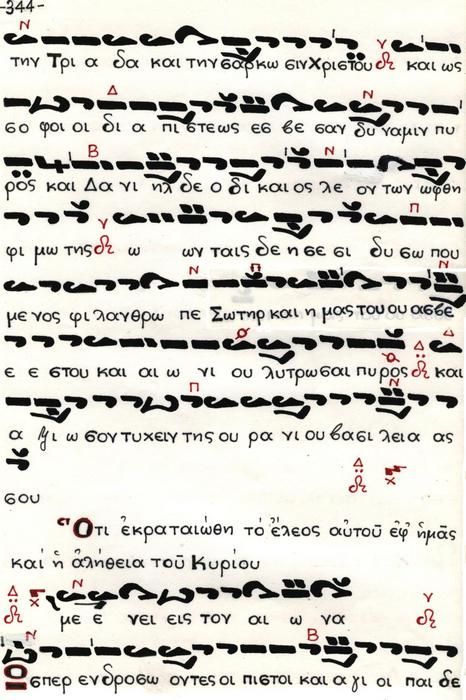 -344-
την Τρι α δα και την σαρκω σιν Χριστου και ως
σο φοι οι δι α πι στεως εσ βε σαν δυ ναμιν πυ
ρος και Δα νι ηλ δε ο δι και ος λε ον των ωφθη
φι μω της ω ων ταις δε η σε σι δυ σω που
με νος φι λανθρω πε Σωτηρ και η μας του ου ασβε
ε ε στου και αι ω νι ου λυτρωσαι πυ ρος και
α ξι ω σον τυχειν της ου ρα νι ου βασι λεια ας
σου
Ὅτι ἐκραταιώθη τό ἔλεος αὐτοῦ ἐφ' ἡμᾶς
καί ἡ ἀλήθεια τοῦ Κυρίου
με ε νει εις τον αι ω να
Ωσπερ εν δροσω οντες οι πιστοι και α γι οι παι δε